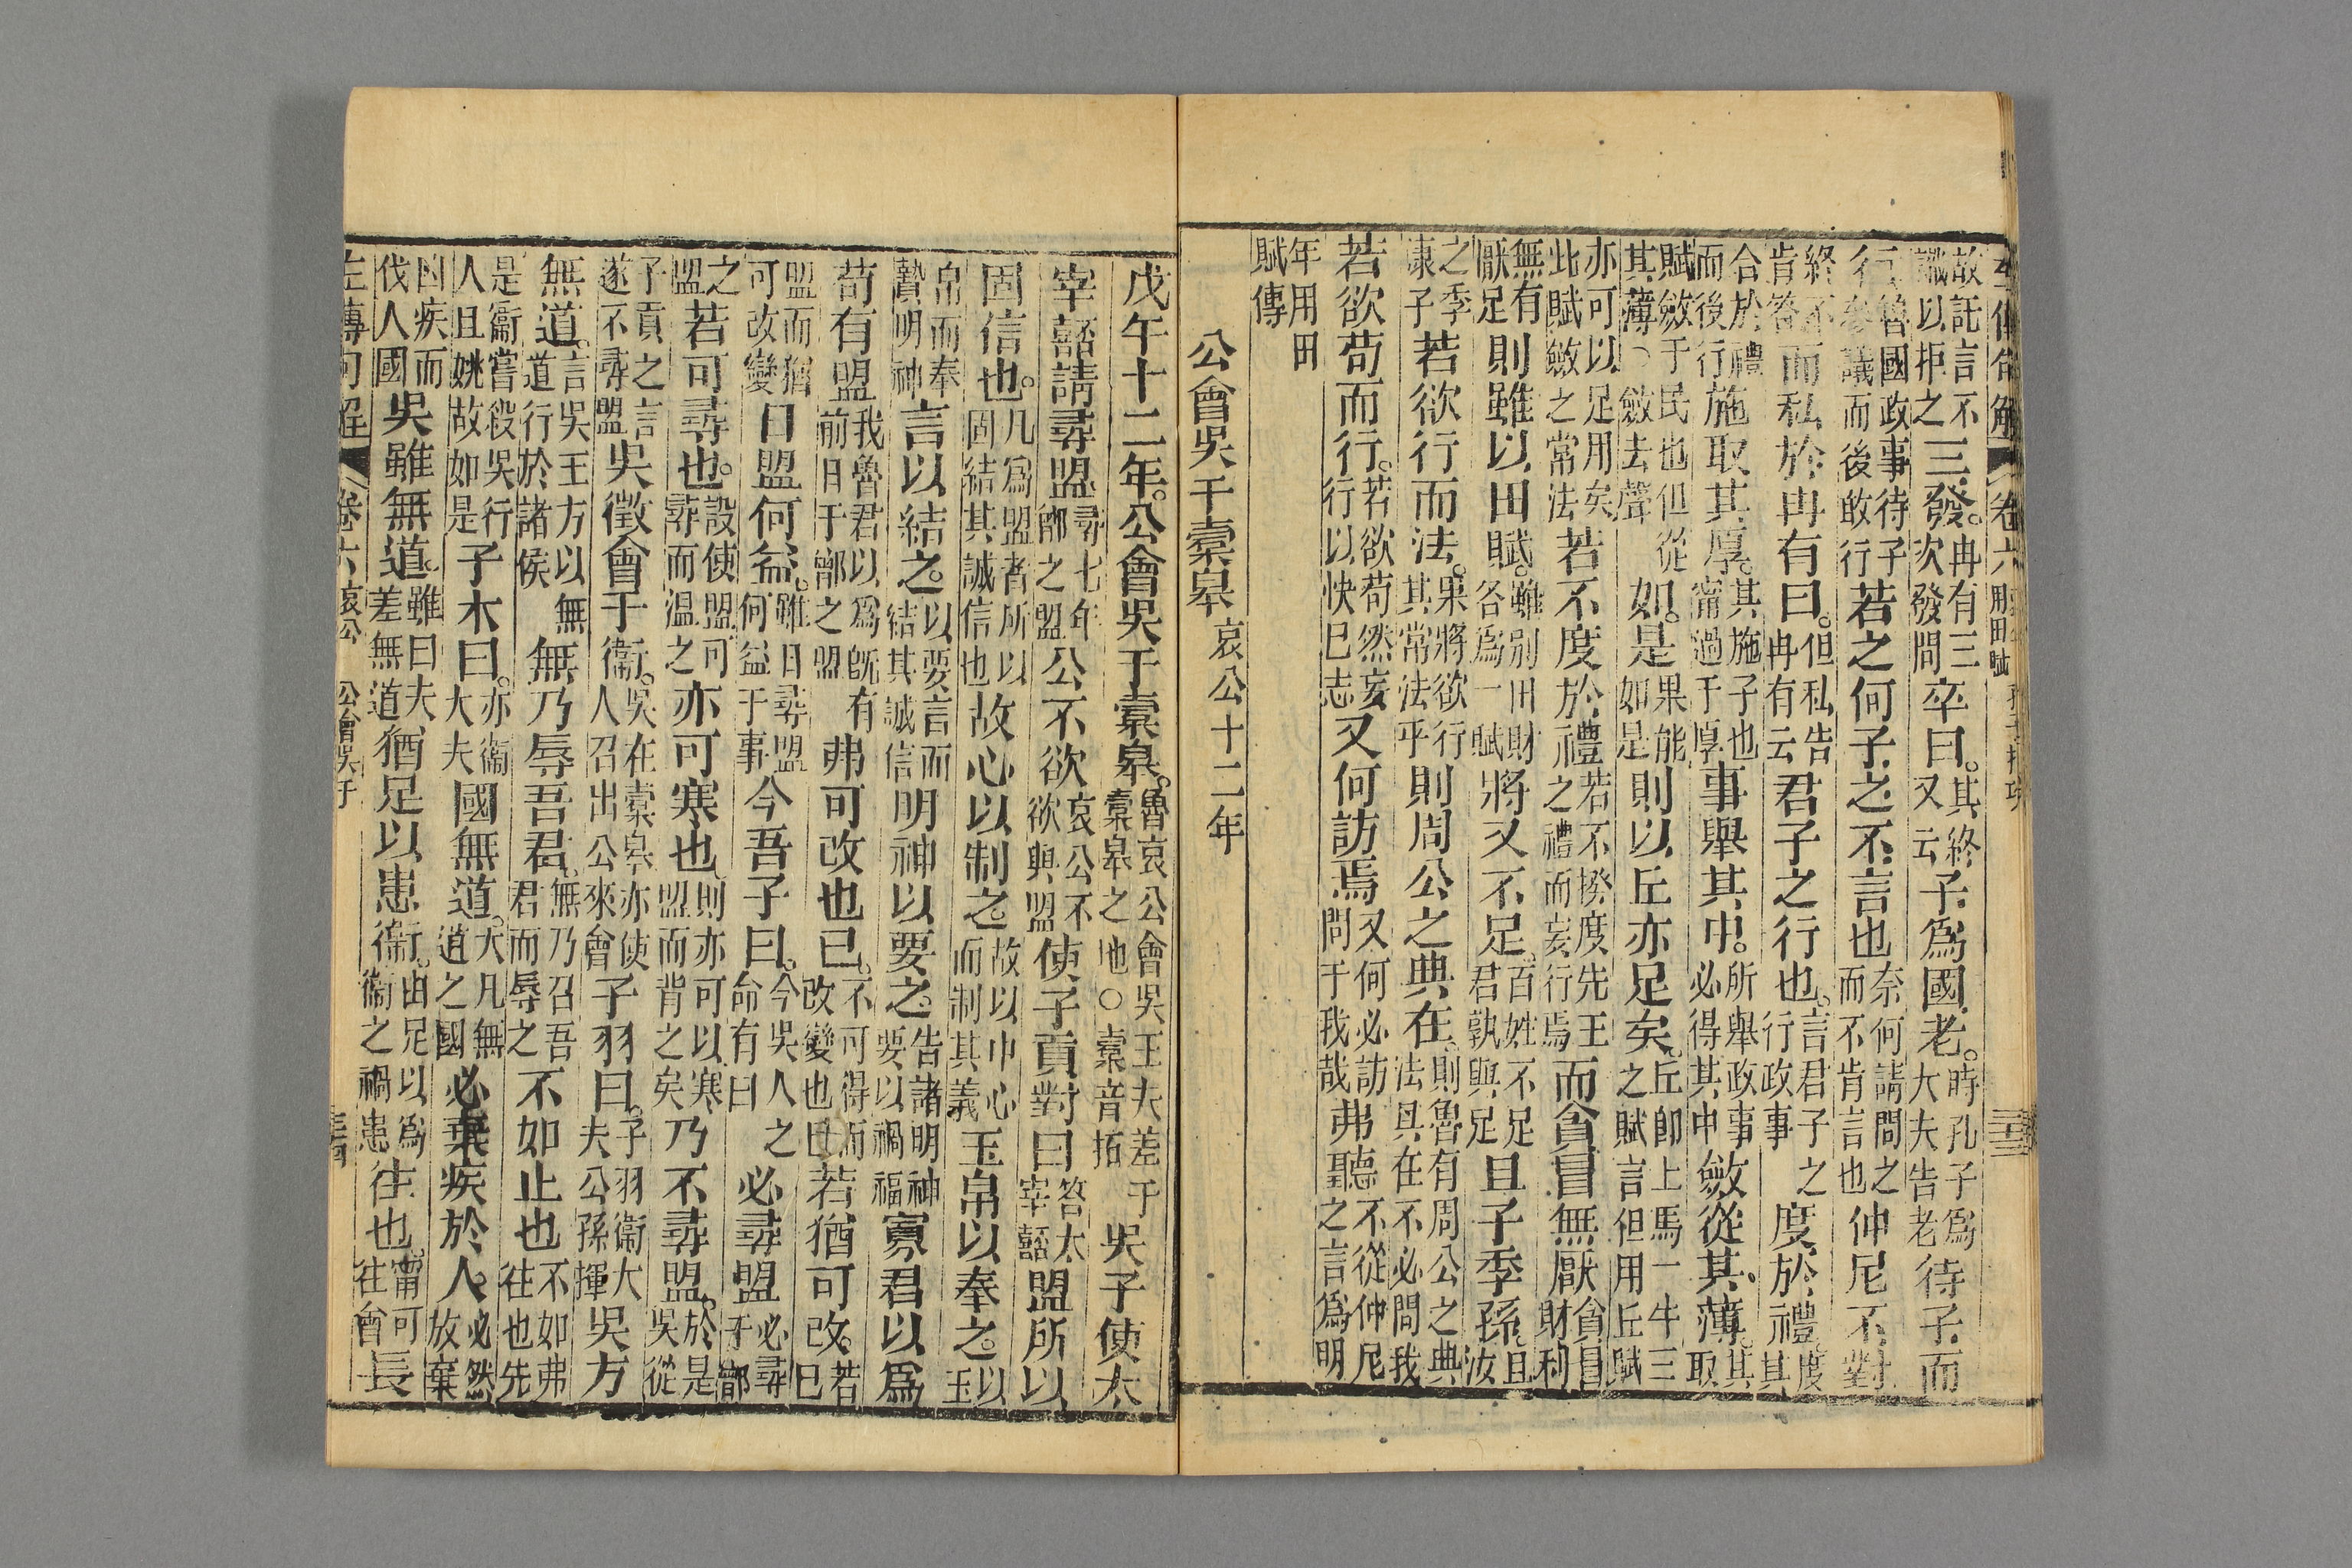 左傳句解 卷六 用田賦 二十三
故託言不識以拒之三發。冉有三次發問卒曰。其終又云子爲國老。時孔子爲大夫告老待子而
行魯國政事待子參議而後敢行若之何子之不言也奈何請問之而不肯言也仲尼不對
終不肯答而私於冉有曰。但私告冉有云君子之行也。言君子之行政事度於禮。度其
合於禮而後行施取其厚。其施子也甯過于厚事舉其中。所舉政事必得其中斂從其薄。其取
賦斂于民也但從其薄○斂去聲如是。果能如是則以丘亦足矣。丘卽上馬一牛三之賦言但用丘賦
亦可以足用矣此賦斂之常法若不度於禮若不揆度先王之禮而妄行焉而貪冒無厭貪冒財利
無有厭足則雖以田賦。雖別田財各爲一賦將又不足。百姓不足君孰與足且子季孫。且汝
之季康子若欲行而法。果將欲行其常法乎則周公之典在。則魯有周公之典法具在不必問我
若欲苟而行。若欲苟然妄行以快巳志又何訪焉又何必訪問于我哉弗聽不從仲尼之言爲明
年用田賦傳
公會吳于橐皋 哀公十二年
戊午十二年。公會吳于橐皋。魯哀公會吳王夫差于橐皋之地○橐音拓吳子使太
宰嚭請尋盟尋七年鄫之盟公不欲哀公不欲與盟使子貢對曰答太宰嚭盟所以
固信也。凡爲盟者所以固結其誠信也故心以制之。故以中心而制其義玉帛以奉之。以玉
帛而奉贄明神言以結之。以要言而結其誠信明神以要之。告諸明神要以禍福寡君以爲
苟有盟我魯君以爲旣有前日于鄫之盟弗可改也巳。不可得而改變也巳若猶可改。若巳
盟而猶可改變日盟何益。雖日尋盟何益于事今吾子曰。今吳人之命有曰必尋盟必尋于鄫
之盟若可尋也。設使盟可尋而温之亦可寒也則亦可以寒盟而背之矣乃不尋盟。於是吳從
子貢之言遂不尋盟吳徵會于衞。吳在橐皋亦使人召出公來會子羽曰。子羽衞大夫公孫揮吳方
無道。言吳王方以無道行於諸侯無乃辱吾君。無乃召吾君而辱之不如止也不如弗往也先
是衞嘗殺吳行人且姚故如是子木曰。亦衞大夫國無道。大凡無道之國必棄疾於人必然放棄
凶疾而伐人國吳雖無道雖曰夫差無道猶足以患衞。由足以爲衞之禍患往也甯可往會長
左傳句解 卷六 哀公 公會吳于 二十四